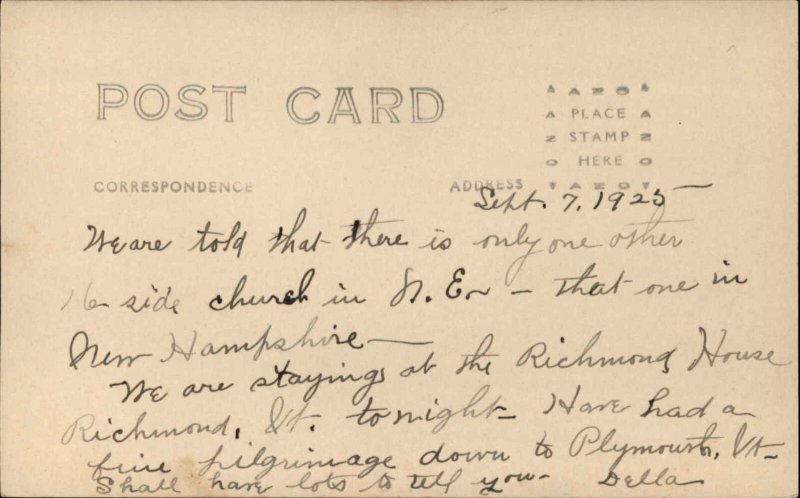 POST CARD
AZO
PLACE
STAMP
HERE
AZO
CORRESPONDENCE ADDRESS
Sept. 7, 1925
We are told that there is only one other
16 side church in N. E. - that one in
New Hampshire -
We are staying at the Richmond House
Richmond, Vt. tonight - Have had a
fine pilgrimage down to Plymouth, Vt -
Shall have lots to tell you - Della